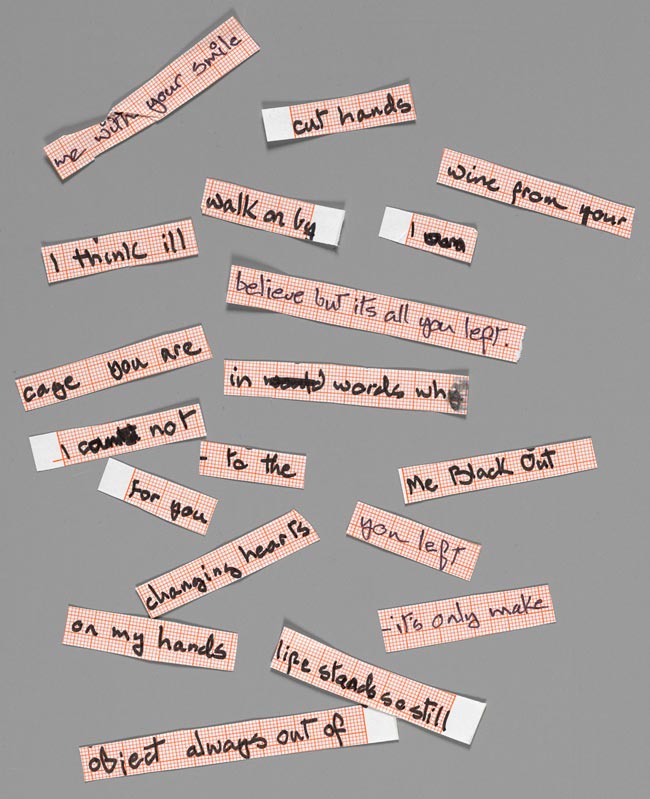 me with your smile
cut hands
wine from your
walk on by
I
I think ill
believe but its all you left.
cage you are
in words wh
I not
- to the
Me Black Out
for you
you left
changing hearts
-it's only make
on my hands
life stands so still
object always out of